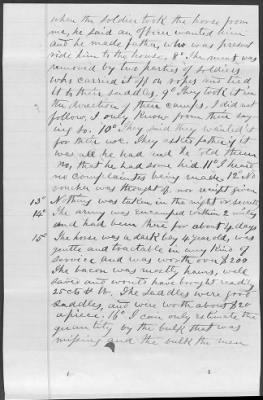 when the soldier took the horse from
me, he said an officer wanted him
and he made father, who was present
ride him to the house. 8° The meat was
removed by two parties of soldiers
who carried it off on ropes and tied
it to their saddles. 9° They took it in
the direction of their camps. I did not
follow, I only know from their say
ing so. 10° They said they wanted it
for their use. They asked father if it
was all he had and he told them
no, that he had some hid. 11° I heard
no complaint being made. 12° No
voucher was thought of, nor receipt given
13° Nothing was taken in the night or secretly
14° The army was encamped within 2 miles
and had been there for about 4 days
15° The horse was a dark bay 4 years old, was
gentle and tractable in any kind of
service and was worth over $200
The bacon was mostly hams, well
saved and would have brought readily
25 cts ℔. The saddles were good
saddles, and were worth about $20
apiece. 16° I can only estimate the
quantity by the bulk that was
missing and the bulk the men